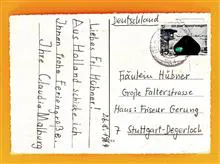 Deutschland
Liebes Frl. Hübner!
Aus Holland schicke ich
Ihnen
Feriengrüße
Ihre Claudia Malburg
Fräulein Hübner
Große Falterstrasse
Haus: Friseur Gerung
7 Stuttgart-Degerloch